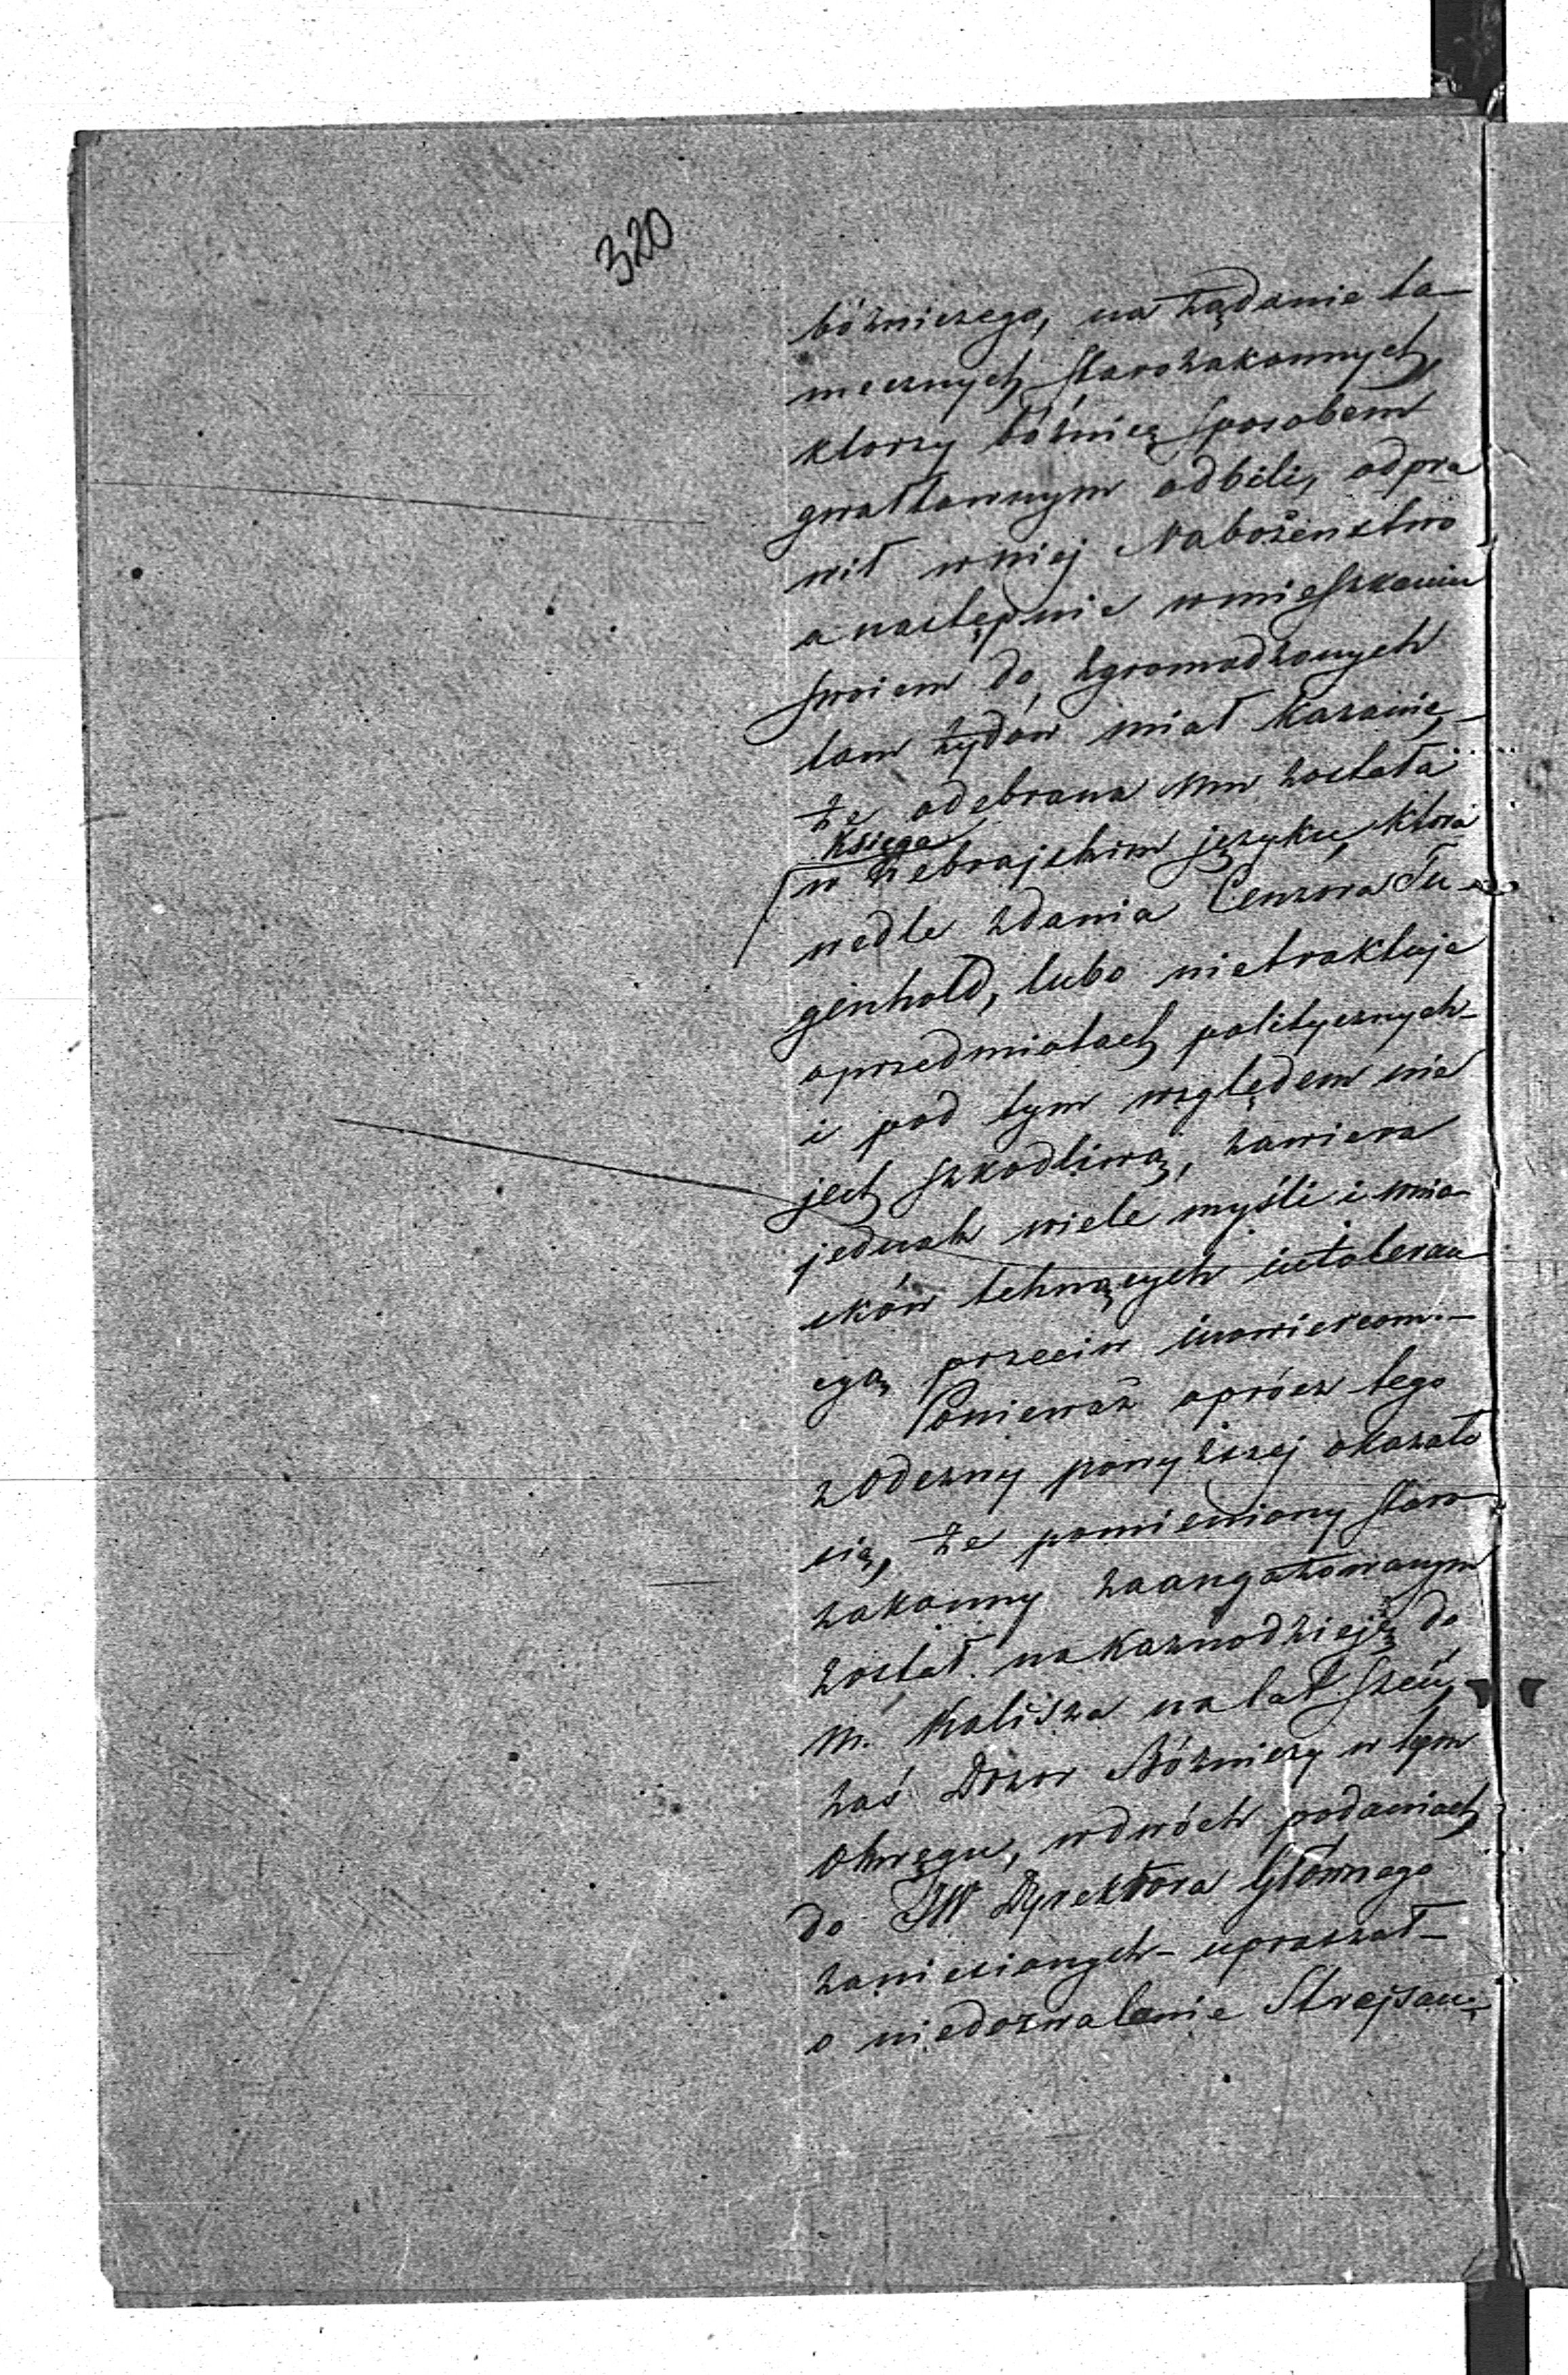 320
bóżniczego, na żądanie ta-
mecznych Starozakonnych,
ktorzy bóżnicę sposobem
gwałtownym odbili, odpra
wił w niej Nabożeństwo
a następnie w mieszkaniu
swoiem do zgromadzonych
tam żydów miał kazanie_
że odebrana Mu została
Księga
w hebrajskim języku, która
wedle zdania Cenzora Tu-
genhold, lubo nietraktuje
o przedmiotach politycznych
i pod tym względem nie
jest szkodliwą, zawiera
jednak wiele myśli i wnio-
sków tchnących intoleran
cyą przeciw inowiercom.—
Ponieważ oprócz tego
z Odezwy powyższej okazało
się, że pomieniony Staro
zakonny zaangażowanym
został na Kaznodzieję do
M. Kalisza na lat sześć,
zaś Dozor Bóżniczy w tym
Okręgu, w dwóch podaniach
do JW Dyrektora Głównego
zaniesionych - upraszał -
o niedozwalenie Strejsan-